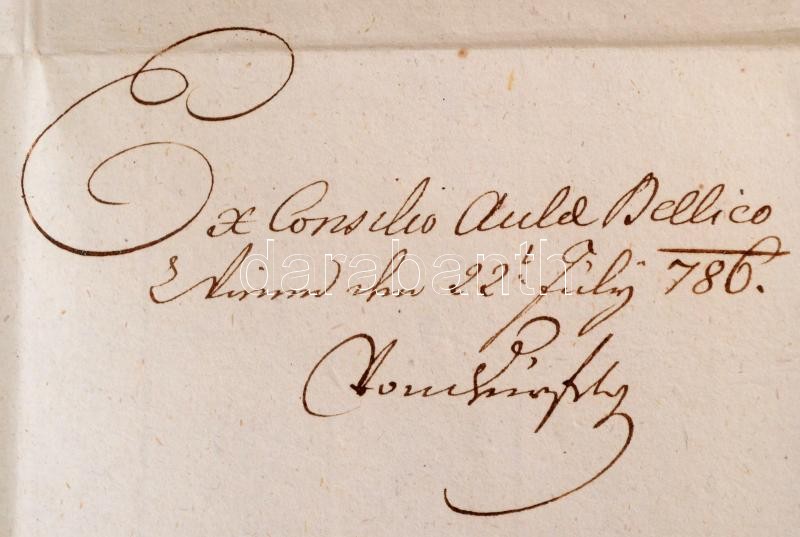 Ex Consilio Aulæ Bellico
Wienn den 22.t July 786.
darabanth